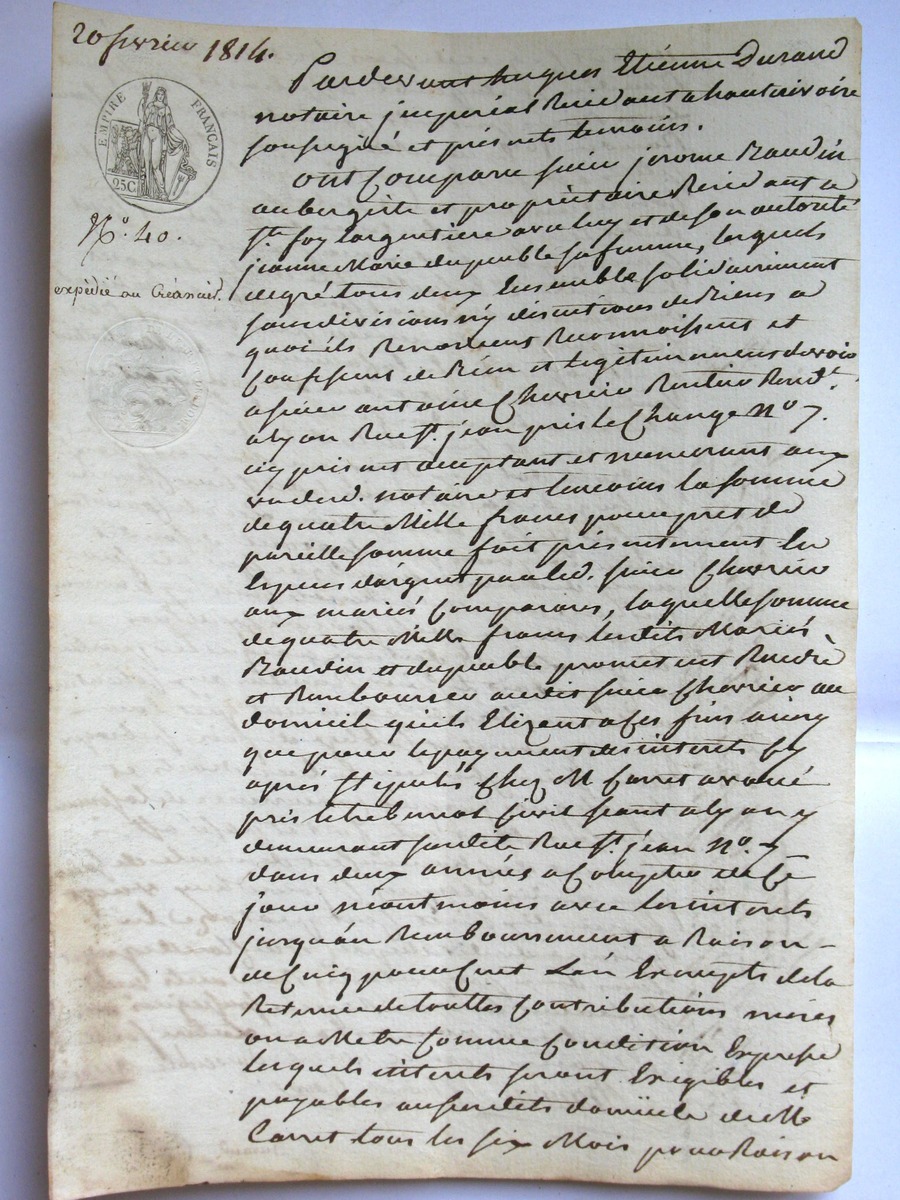 20 fevrier 1814.
EMPIRE FRANÇAIS
25C
N.o 40.
expédié au Créancier.
Pardevant hugues Etiénne Durand
notaire jmperial Resid ant a hauterivoire
soussigné et présents temoins.
ont Comparu sieur jerome Baudin
aubergiste et proprietaire Resid ant a
st. foy largentiere avec luy et de son autorité
jeanne Marie dupeuble sa femme, lesquels
de gré tous deux Ensemble solidairement
sans divisions ny discutions de Biens a
quoi ils Renoncent Reconnoissent et
Confessent de Bien et legitimement devoir
a sieur antoine Cherrier Rentier Resid.t
a lyon Rue st. jean près le Change No 7.
icy présent acceptant et numerant aux
vu desd. notaire et temoins la somme
de quatre Mille francs pour pret de
pareille somme fait présentement En
Espèces d'argent par led. sieur Cherrier
aux mariés Comparans, laquelle somme
de quatre Mille francs lesdits Mariés
Baudin et dupeuble promettent Rendre
et Rembourser audit sieur Cherrier au
domicile qu'ils Elizent a Ces fins ainsy
que pour le payement des interets Cy
après stipulés Chez M Carret avoué
près le tribunal Civil seant a lyon y
demeurant susdite Rue st. jean No. 7
dans deux années a Compter de Ce
jour néantmoins avec les interets
jusqu'au Remboursement a Raison
de Cinq pour Cent L'an Exempts de la
Retenue de touttes Contributions mises
ou a Metre Comme Condition Expresse
lesquels interets seront Exigibles et
payables au susdits domicile de M
Carret tous les six Mois pour Raison